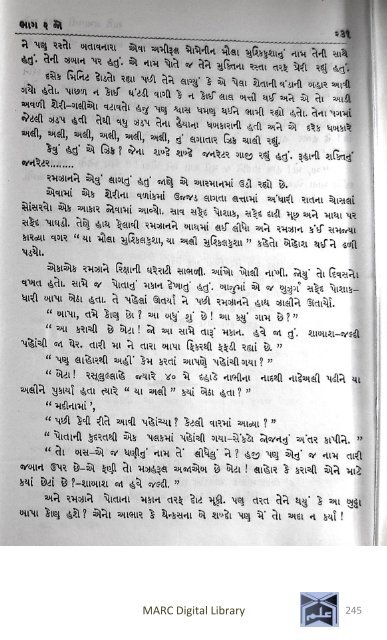 ભાગ ૬ ઠ્ઠો ૨૩૧
ને પણ રસ્તો બતાવનારા એવા અમીરૂલ મોમેનીન મૌલા મુશ્કિલકુશાનું નામ તેની સાથે
હતું. તેની ઝબાન પર હતું. એ નામ પોતે જ તેને મુક્તિના રસ્તા તરફ પ્રેરી રહ્યું હતું.
દસેક મિનિટ દોડતો રહ્યા પછી તેને લાગ્યું કે એ પેલા શેતાની વંડાની બહાર આવી
ગયો હતો. પાછળ ન કાંઈ ઘંટડી વાગી કે ન કાંઈ લાલ બત્તી થઈ અને એ તો આડી
અવળી શેરી-ગલીઓ વટાવતો હજુ પણ શ્વાસ ધમણ થઈને ભાગી રહ્યો હતો. તેના પગમાં
જેટલી ઝડપ હતી તેથી વધુ ઝડપ તેના હૈયાના ધબકારાની હતી અને એ દરેક ધબકારે
અલી, અલી, અલી, અલી, અલી, અલી, નું લગાતાર ઝિક્ર ચાલી રહ્યું.
કેવું હતું એ ઝિક્ર? જેના શબ્દે શબ્દે જનરેટર ગાજી રહ્યું હતું. રૂહાની શક્તિનું
જનરેટર........
રમઝાનને એવું લાગતું હતું જાણે એ આસ્માનમાં ઉડી રહ્યો છે.
એવામાં એક શેરીના વળાંકમાં ઉજ્જડ લાગતા લત્તામાં અંધારી રાતના ચોસલાં
સોંસરવો એક આકાર જોવામાં આવ્યો. સાવ સફેદ પોશાક, સફેદ દાઢી મૂછ અને માથા પર
સફેદ પાઘડી. તેણે હાથ ફેલાવી રમઝાનને બાથમાં લઈ લીધો અને રમઝાન કંઈ સમજ્યા
કારવ્યા વગર “ યા મૌલા મુશ્કિલકુશા, યા અલી મુશ્કિલકુશા ” કહેતો બેહોશ થઈને ઢળી
પડયો.
એકાએક રમઝાને રિક્ષાની ઘરેરાટી સાભળી. આંખો ખોલી નાખી. જોયું તો દિવસનો
વખત હતો. સામે જ પોતાનું મકાન દેખાતું હતું. બાજુમાં એ જ બુઝુર્ગ સફેદ પોશાક-
ધારી બાપા બેઠા હતા. તે પહેલાં ઉતર્યા ને પછી રમઝાનને હાથ ઝાલીને ઉતાર્યો.
“ બાપા, તમે કોણ છો ? આ બધું શું છે ! આ કયું ગામ છે ? ”
“ આ કરાચી છે બેટા! જો આ સામે તારૂં મકાન. હવે જા તું. શાબાશ-જલ્દી
પહોંચી જા ઘેર. તારી મા ને તારા બાપા ફિકરથી ફફડી રહ્યાં છે. ”
“ પણ લાહોરથી અહીં કેમ કરતાં આપણે પહોંચી ગયા ? ”
“ બેટા! રસૂલુલ્લાહે જ્યારે ૪૦ મે દહાડે નાભીના નાદથી નાદેઅલી પઢીને યા
અલીને પુકાર્યા હતા ત્યારે “ યા અલી ” કયાં બેઠા હતા ? ”
“ મદીનામાં ’,
“ પછી કેવી રીતે આવી પહોંચ્યા ? કેટલી વારમાં આવ્યા ? ”
“ પોતાની કુદરતથી એક પલકમાં પહોંચી ગયા-સેંકડો જોજનનું અંતર કાપીને. ”
“ તો બસ-એ જ ધણીનું નામ તેં લીધેલું ને ! હજી પણ એનું જ નામ તારી
જબાન ઉપર છે-એ ફણી તો મઝહરૂલ અજાએબ છે બેટા ! લાહોર કે કરાચી એને માટે
કયાં છેટાં છે ?-શાબાશ જા હવે જલ્દી. ”
અને રમઝાને પોતાના મકાન તરફ દોટ મૂકી. પણ તરત તેને થયું કે આ બુઢ્ઢા
બાપા કોણ હશે ? એનો આભાર કે થેન્કસના બે શબ્દો પણ મેં તો અદા ન કર્યા !
MARC Digital Library 245